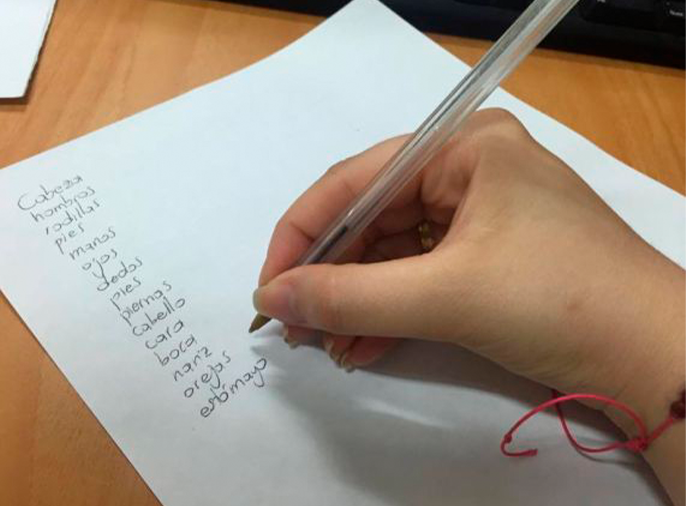 Cabeza
hombros
rodillas
pies
manos
ojos
dedos
pies
piernas
cabello
cara
boca
nariz
orejas
estómayo